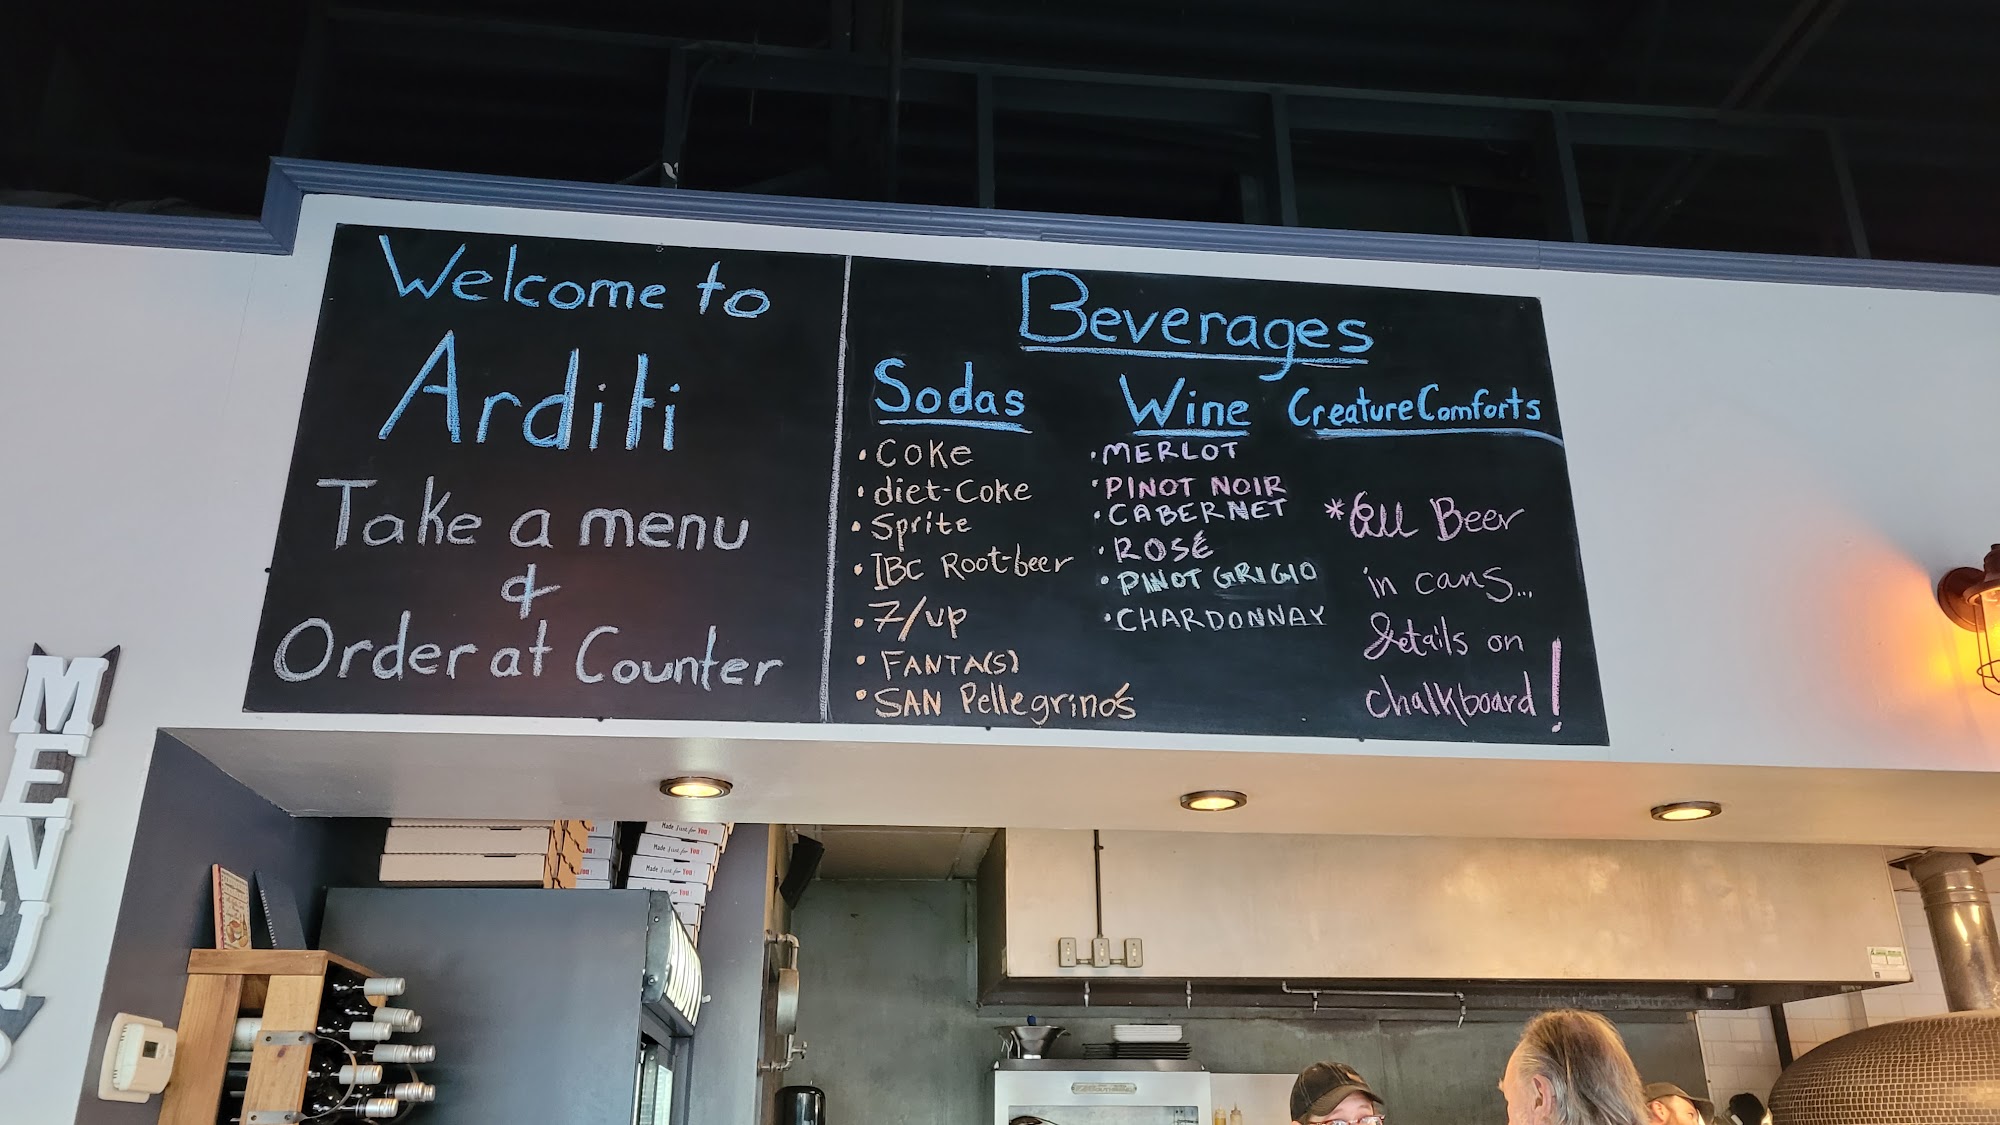 Welcome to
Arditi
Take a menu
&
Order at Counter
Beverages
Sodas
• Coke
• diet-Coke
• Sprite
• IBC Root-beer
• 7/up
• FANTA(S)
• SAN Pellegrino's
Wine
• MERLOT
• PINOT NOIR
• CABERNET
• ROSÉ
• PINOT GRIGIO
• CHARDONNAY
Creature Comforts
*All Beer
in cans...
details on
chalkboard!
MENU
Made Just for You!
Made Just for You!
Made Just for You!
Made Just for You!